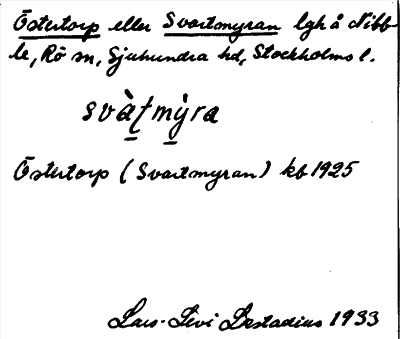 Östertorp eller Svartmyran lgh å Nibb-
le, Rö sn, Sjuhundra hd, Stockholms l.
svàṭmỳra
Östertorp (Svartmyran) kb 1925
Lars-Levi Læstadius 1933